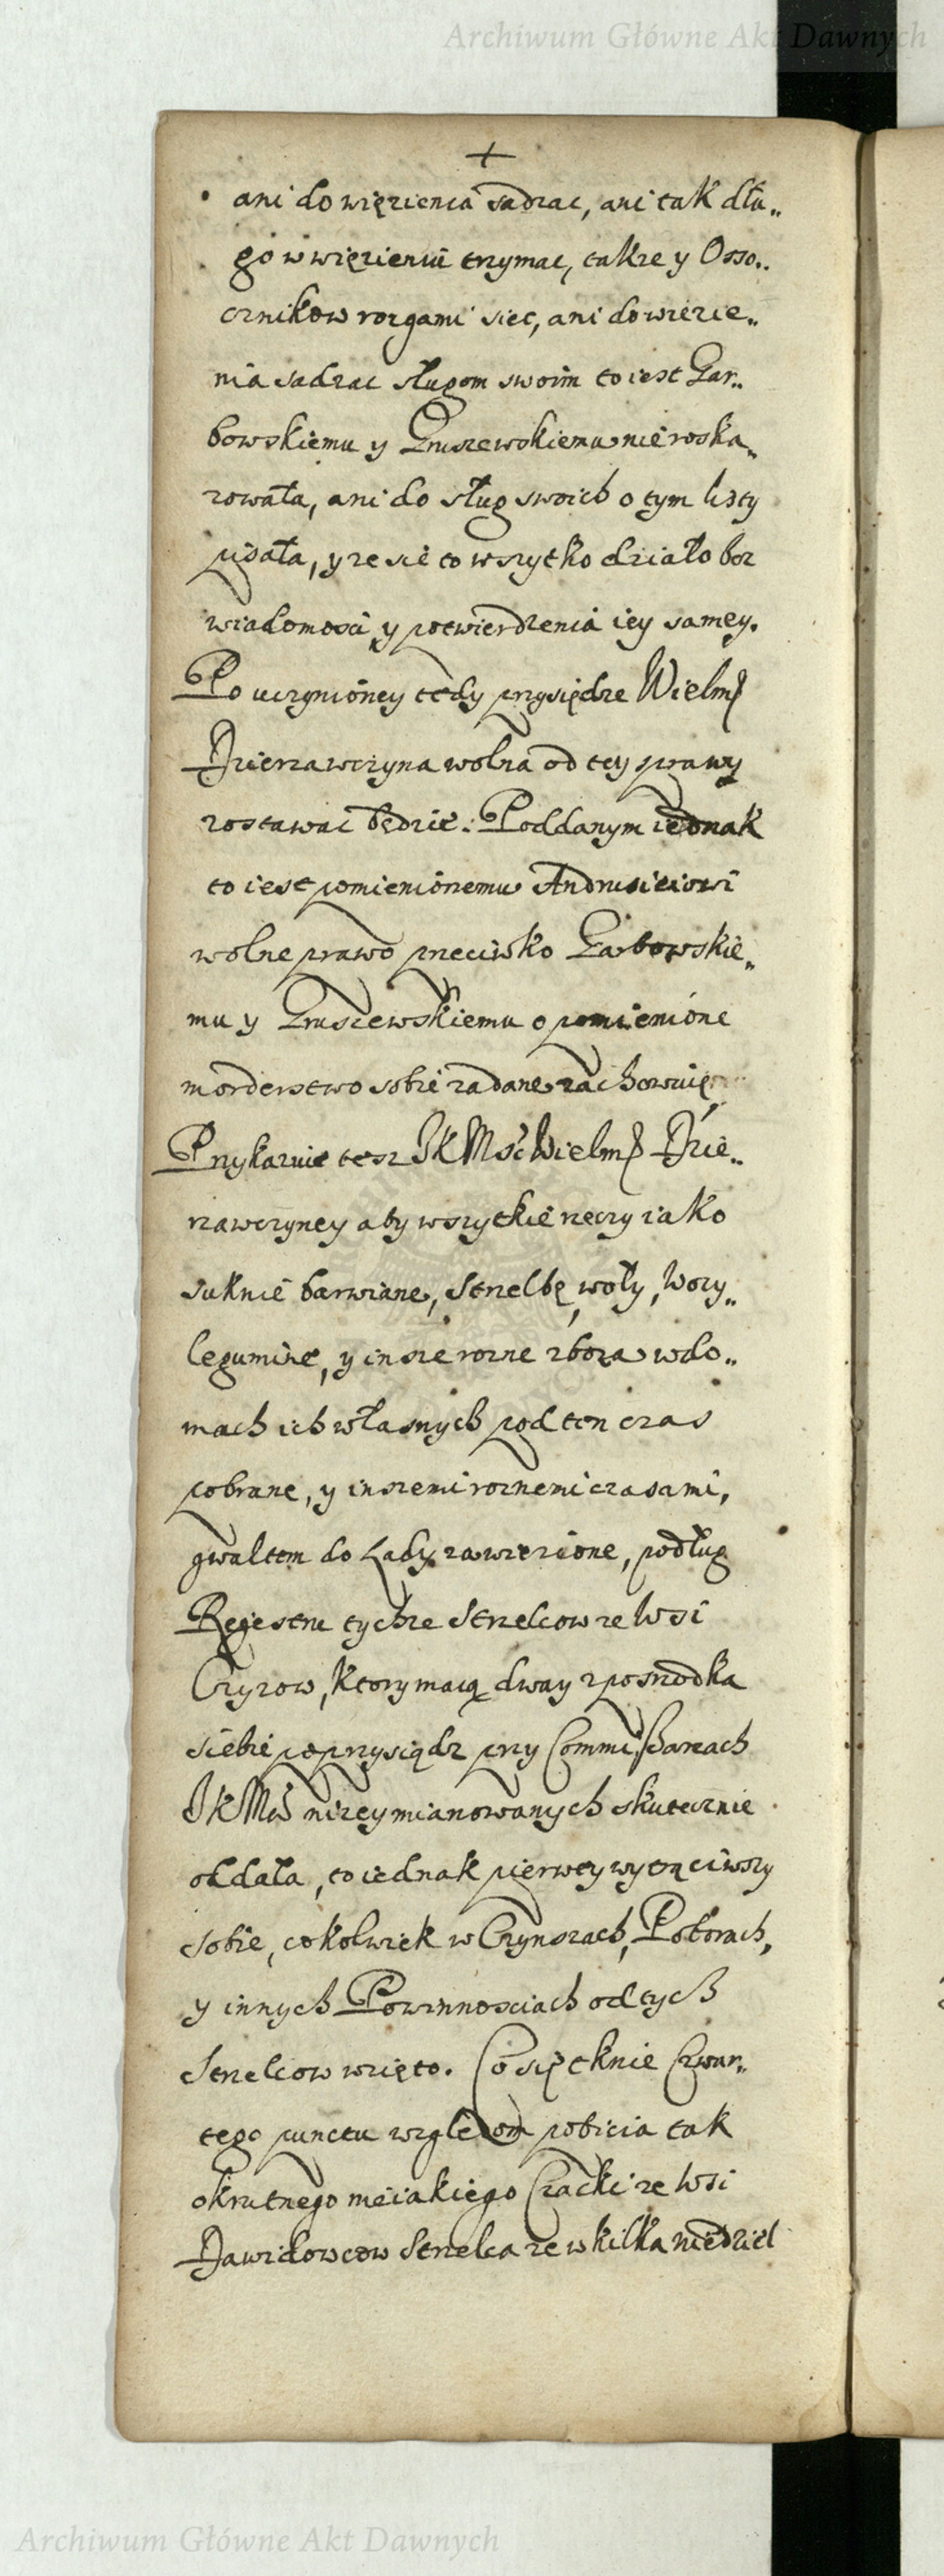 Archiwum Główne Akt Dawnych
+
ani do więzienia sadzac, ani tak dłu„
go w więzieniu trzymac, takze y Osso„
cznikow rozgami siec, ani do wiezie„
nia sadzac sługom swoim to iest Gar„
bowskiemu y Gruszewskiemu nie roska„
zowała, ani do sług swoich o tym listy
pisała, y ze sie to wszytko działo bez
wiadomosci y potwierdzenia iey samey.
Po uczynioney tedy przysiędze Wielmß
Dzierzawczyna wolna od tey sprawy
zostawac będzie: Poddanym iednak
to iest pomienionemu Andrusieiowi
wolne prawo przeciwko Garbowskie„
mu y Gruszewskiemu o pomienione
morderstwo sobie zadane zachowuię
Przykazuie tesz JKMsć Wielmß Dzie„
rzawczyney aby wszytkie rzeczy iako
suknie barwiane, Strzelbę, woły, Wozy„
legumine, y insze rozne zboza w do„
mach ich własnych pod ten czas
pobrane, y inszemi roznemi czasami,
gwałtem do Łady zawiezione, podług
Regestru tychze Strzelcow ze Wsi
Czyzow, ktory maią dway z posrzodka
siebie poprzysiądz przy Commissarzach
JKMsci nizey mianowanych skutecznie
oddała, to iednak pierwey wytrąciwszy
sobie, cokolwiek w Czynszach, Poborach,
y innych Powinnosciach od tych
Strzelcow wzięto. Co się tknie Czwar„
tego punctu względem pobicia tak
okrutnego meiakiego Czacki ze Wsi
Dawidowcow Strzelca ze w kilka niedziel
Archiwum Główne Akt Dawnych